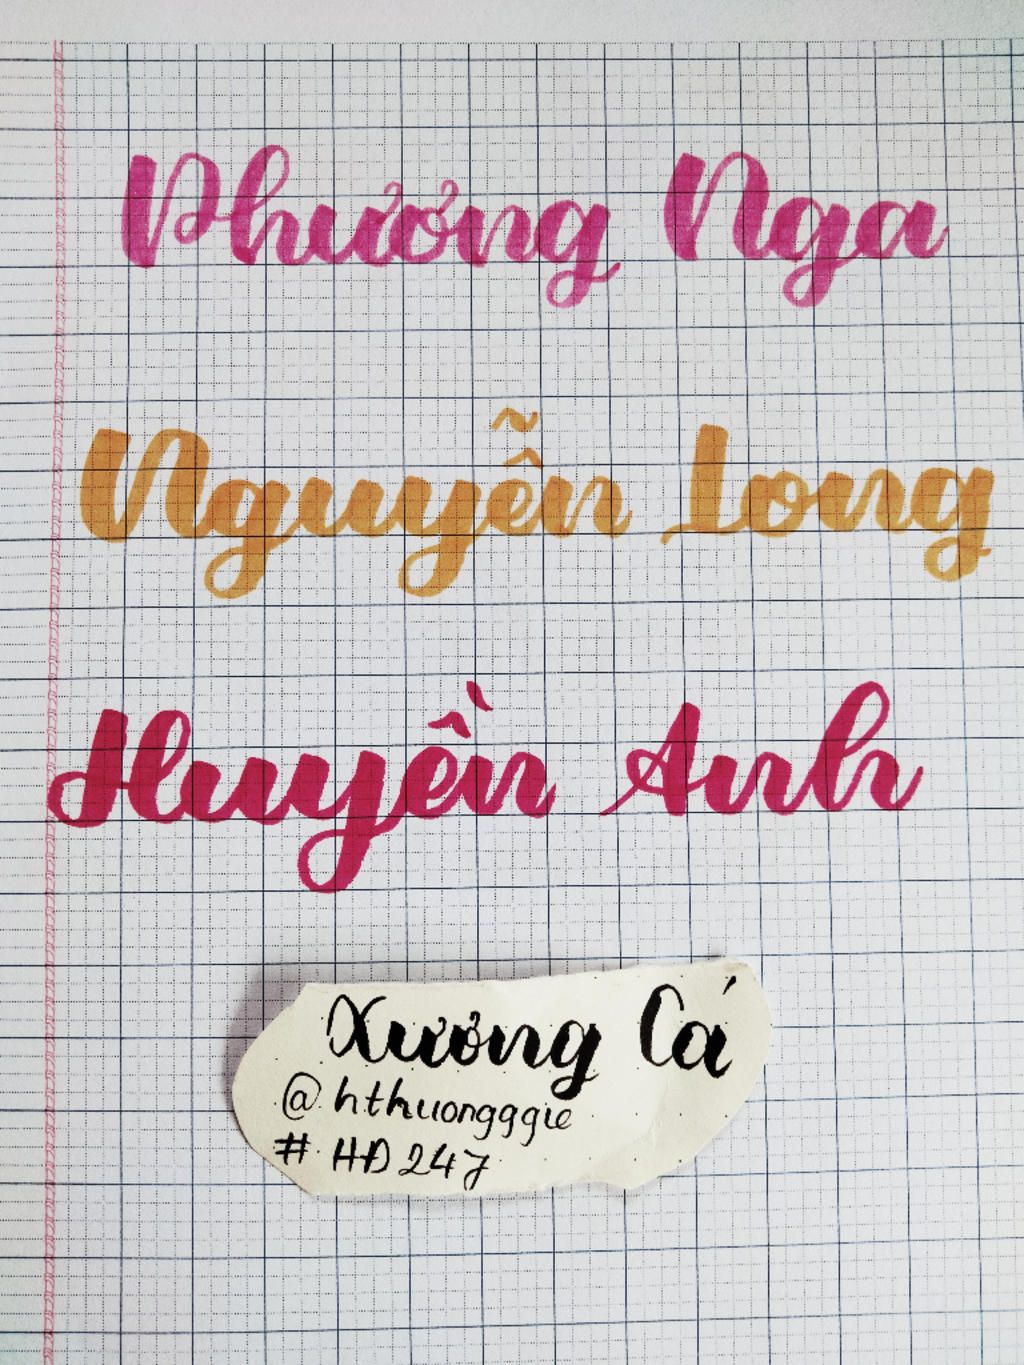 Phương Nga
Nguyễn Long
Huyền Anh
Xương Cá
@hthuongggie
# HĐ247